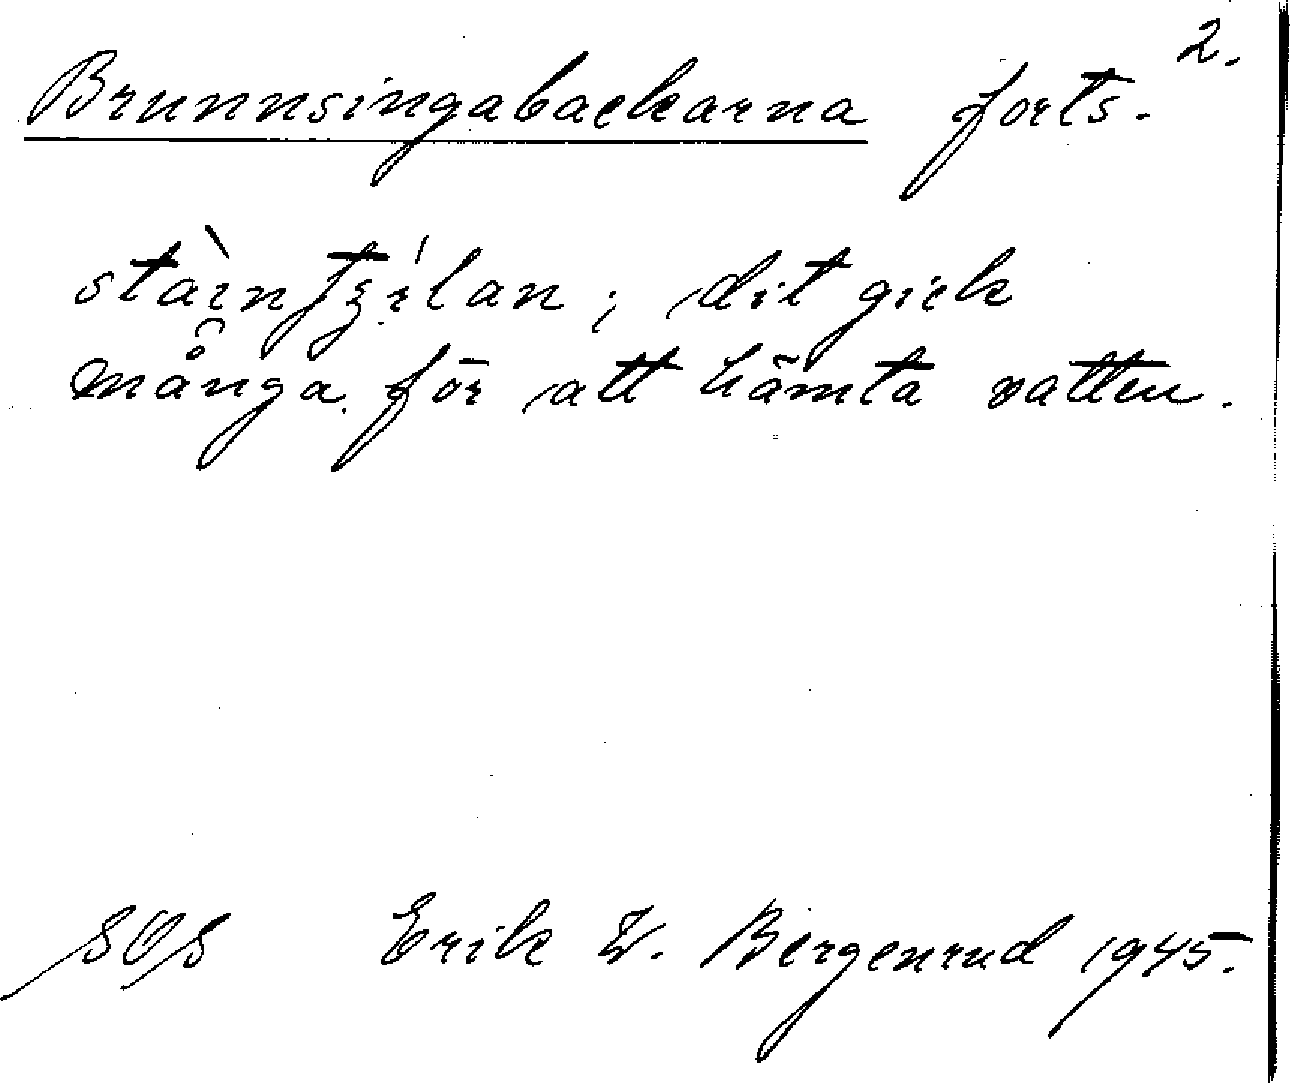 2.
Brunnsingabackarna forts.
dit gick
många för att hämta vatten.
SOS Erik W. Bergenrud 1945.